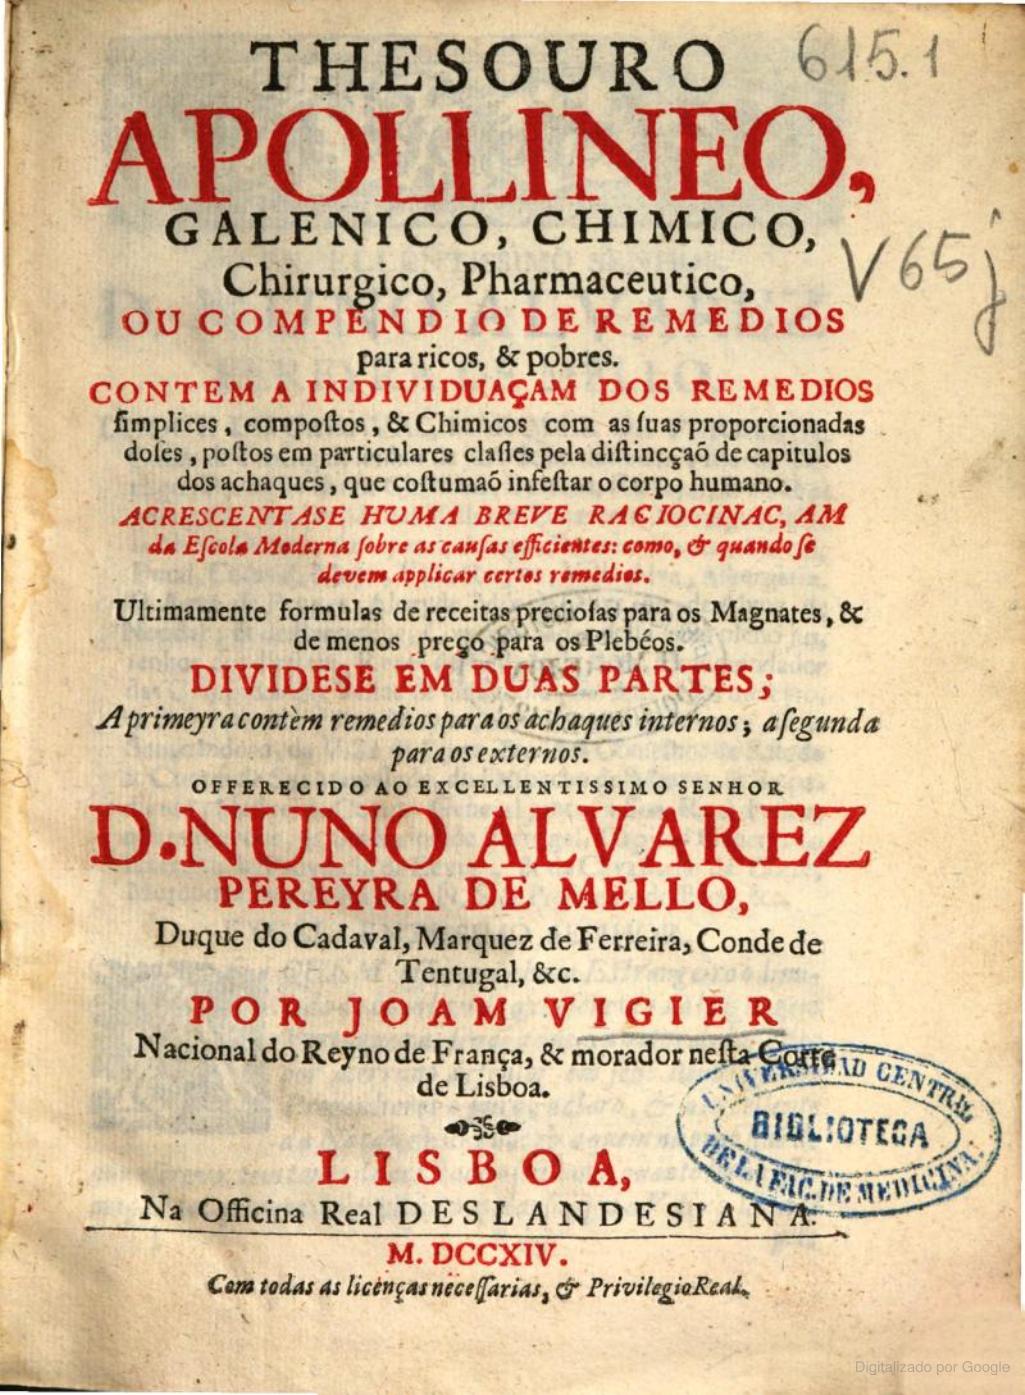 THESOURO
615.1
APOLLINEO,
GALENICO, CHIMICO,
V65j
Chirurgico, Pharmaceutico,
OU COMPENDIO DE REMEDIOS
para ricos, & pobres.
CONTEM A INDIVIDUAÇAM DOS REMEDIOS
ſimplices, compoſtos, & Chimicos com as ſuas proporcionadas
doſes, poſtos em particulares claſſes pela diſtincçaõ de capitulos
dos achaques, que coſtumaõ infeſtar o corpo humano.
ACRESCENTASE HUMA BREVE RACIOCINAC, AM
da Eſcola Moderna ſobre as cauſas efficientes: como, & quando ſe
devem applicar certos remedios.
Ultimamente formulas de receitas precioſas para os Magnates, &
de menos preço para os Plebéos.
DIVIDESE EM DUAS PARTES;
A primeyra contèm remedios para os achaques internos; a ſegunda
para os externos.
OFFERECIDO AO EXCELLENTISSIMO SENHOR
D. NUNO ALVAREZ
PEREYRA DE MELLO,
Duque do Cadaval, Marquez de Ferreira, Conde de
Tentugal, &c.
POR JOAM VIGIER
Nacional do Reyno de França, & morador neſta Corte
de Lisboa.
UNIVERSIDAD CENTRAL
BIBLIOTECA
DE LA FAC. DE MEDICINA.
LISBOA,
Na Officina Real DESLANDESIANA.
M. DCCXIV.
Com todas as licenças neceſſarias, & Privilegio Real.
Digitalizado por Google